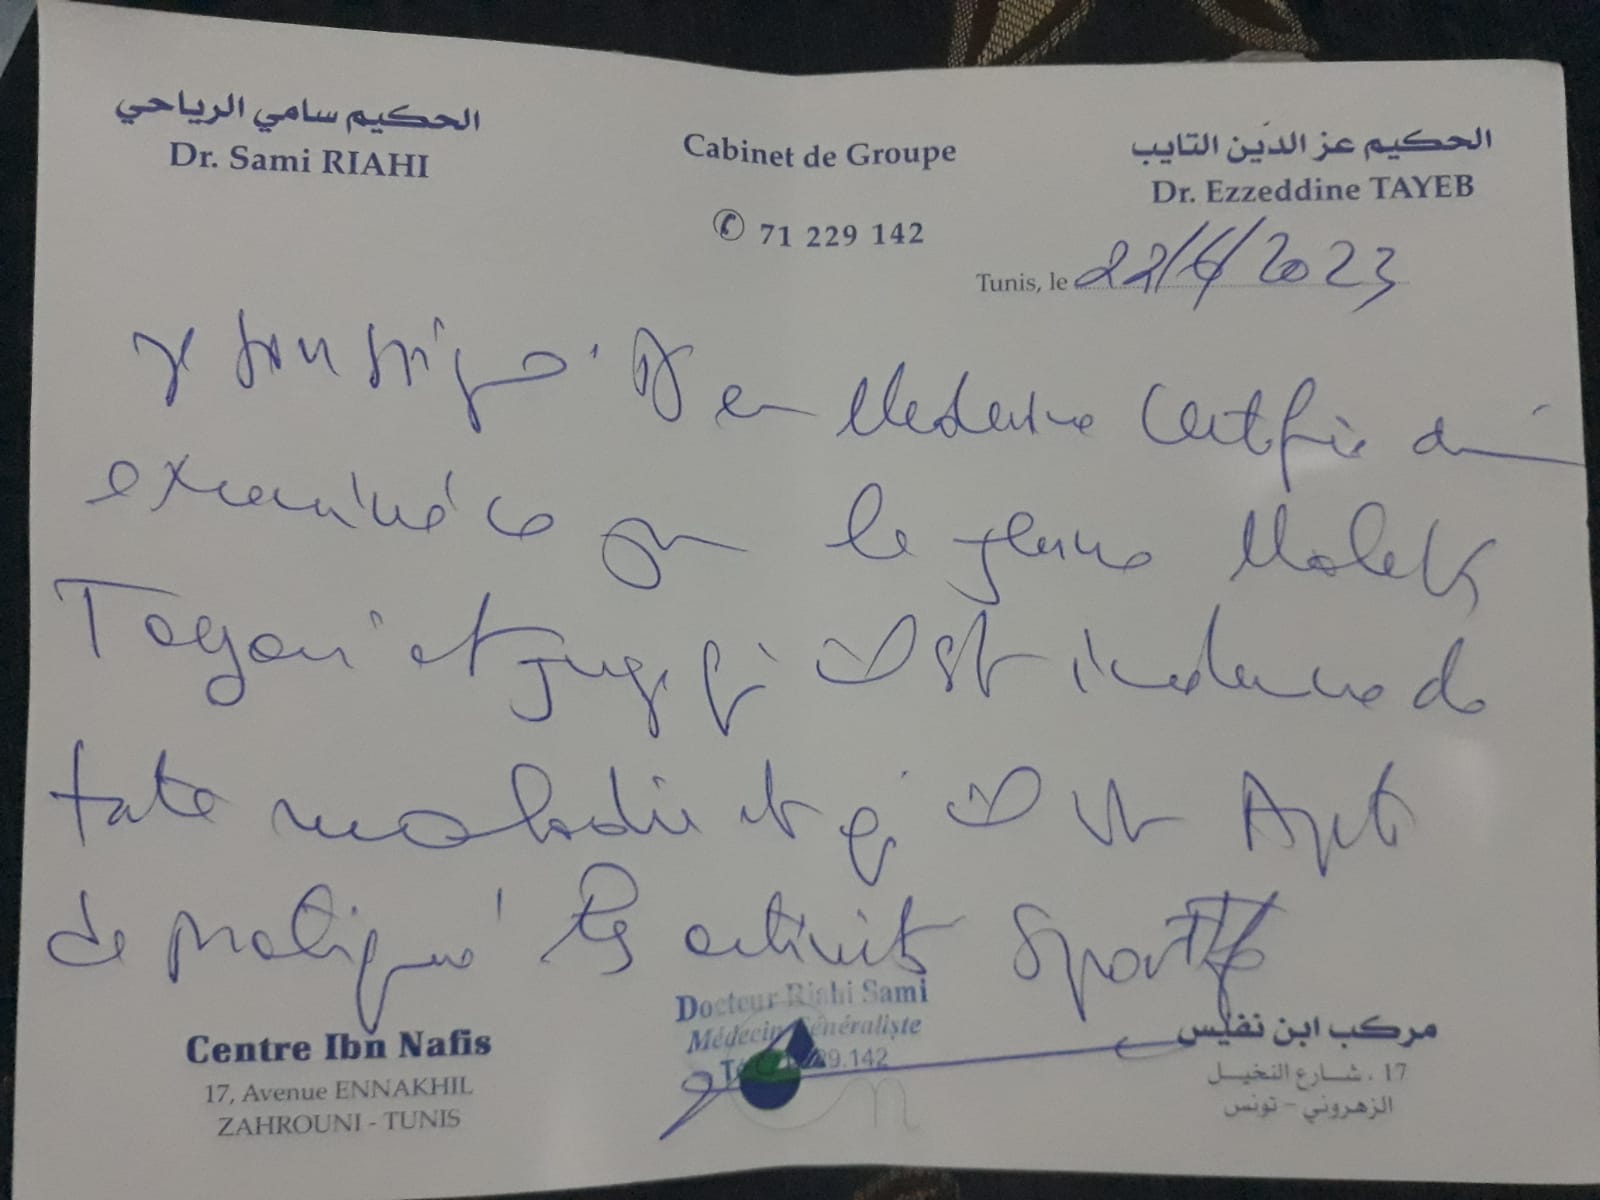 الحكيم سامي الرياحي
Dr. Sami RIAHI
Cabinet de Groupe
✆ 71 229 142
الحكيم عز الدين التايب
Dr. Ezzeddine TAYEB
Tunis, le 22/6/2023
Je soussigné Dr en Medecine Certifie avoir
examiné ce jour le jeune Malek
et juge qu'il est indemne de
toute maladie et qu'il est Apte
de pratiquer les activités Sportives
Docteur Riahi Sami
Médecin Généraliste
Centre Ibn Nafis
17, Avenue ENNAKHIL
ZAHROUNI - TUNIS
مركب ابن نفيس
17 . شارع النخيل
الزهروني - تونس